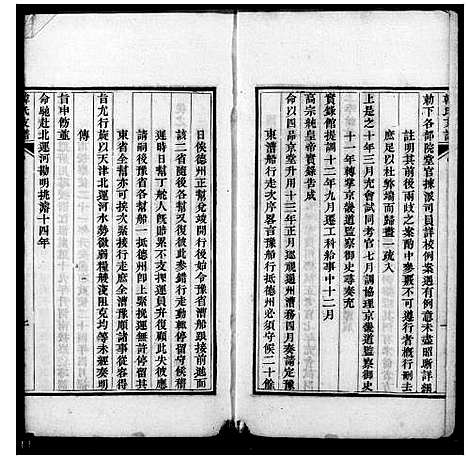 勅下各部院堂官揀派司員詳核例案遇有例意未盡昭晰詳細
註明其前後兩歧之案酌中參覈不可遵行者概行刪去
庶足以杜弊端而歸畫一疏入
上是之十年三月充會試同考官七月調協理京畿道監察御史
十一年轉掌京畿道監察御史尋奏充
實錄館提調十二年九月遷工科給事中十二月
高宗純皇帝實錄告成
命以四品京堂升用十三年正月巡視通州漕務四月奏請定豫
東漕船行走次序畧言豫船行抵德州必須守候二十餘
日俟德州正幫兌竣開行後始令豫省漕船跟接前進
該二省隨後各幫又復彼此參錯行走動輒停留守候稽
延時日幫丁舵人俱賠累不支撥運員弁復顧此失彼應
請嗣後豫省各幫船一抵德州即上緊挽運無許停留其
東省全幫亦可挨次緊接行走庶全漕豫順諸事從容得
旨允行旋以天津北運河水勢微弱糧艘淺阻克均等未經奏明
傳
旨申飭並
命馳赴北運河勘明挑濬十四年